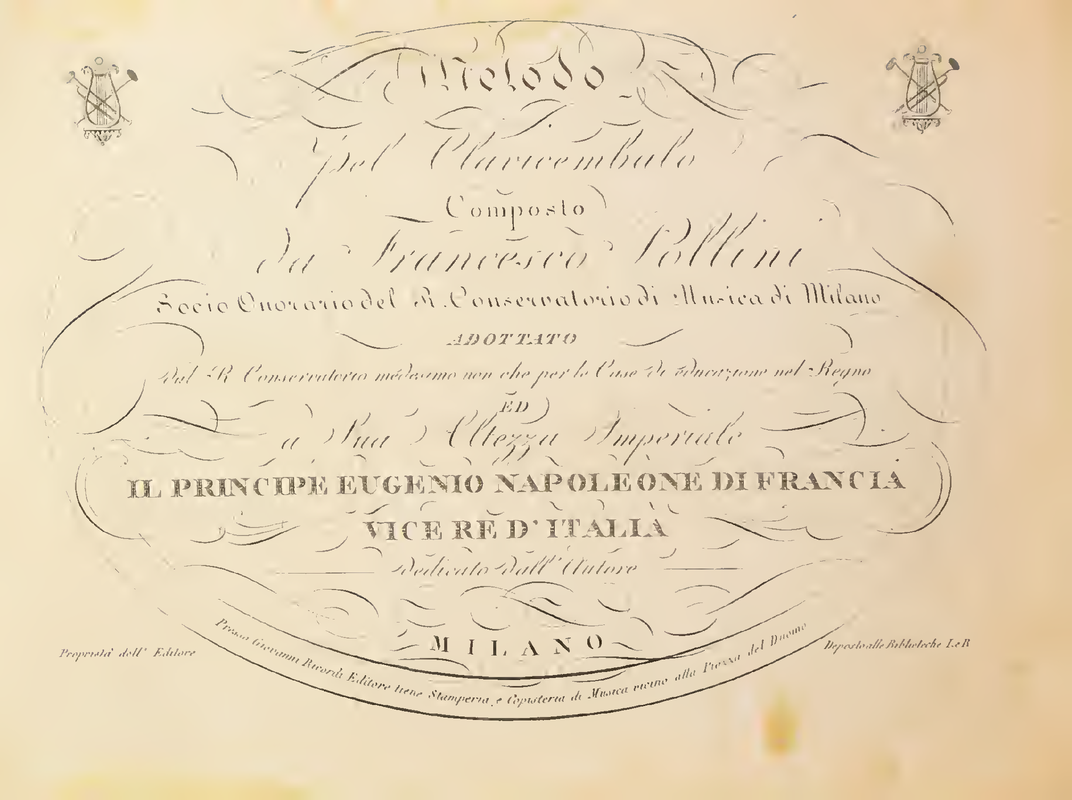 Metodo
pel Clavicembalo
Composto
da Francesco Pollini
Socio Onorario del R. Conservatorio di Musica di Milano
ADOTTATO
dal R Conservatorio medesimo non che per le Case di educazione nel Regno
ED
a Sua Altezza Imperiale
IL PRINCIPE EUGENIO NAPOLEONE DI FRANCIA
VICE RE D' ITALIA
dedicato dall' Autore
MILANO
Presso Giovanni Ricordi Editore tiene Stamperia, e Copisteria di Musica vicino alla Piazza del Duomo
Proprietà dell' Editore
Deposto alle Biblioteche I. e R